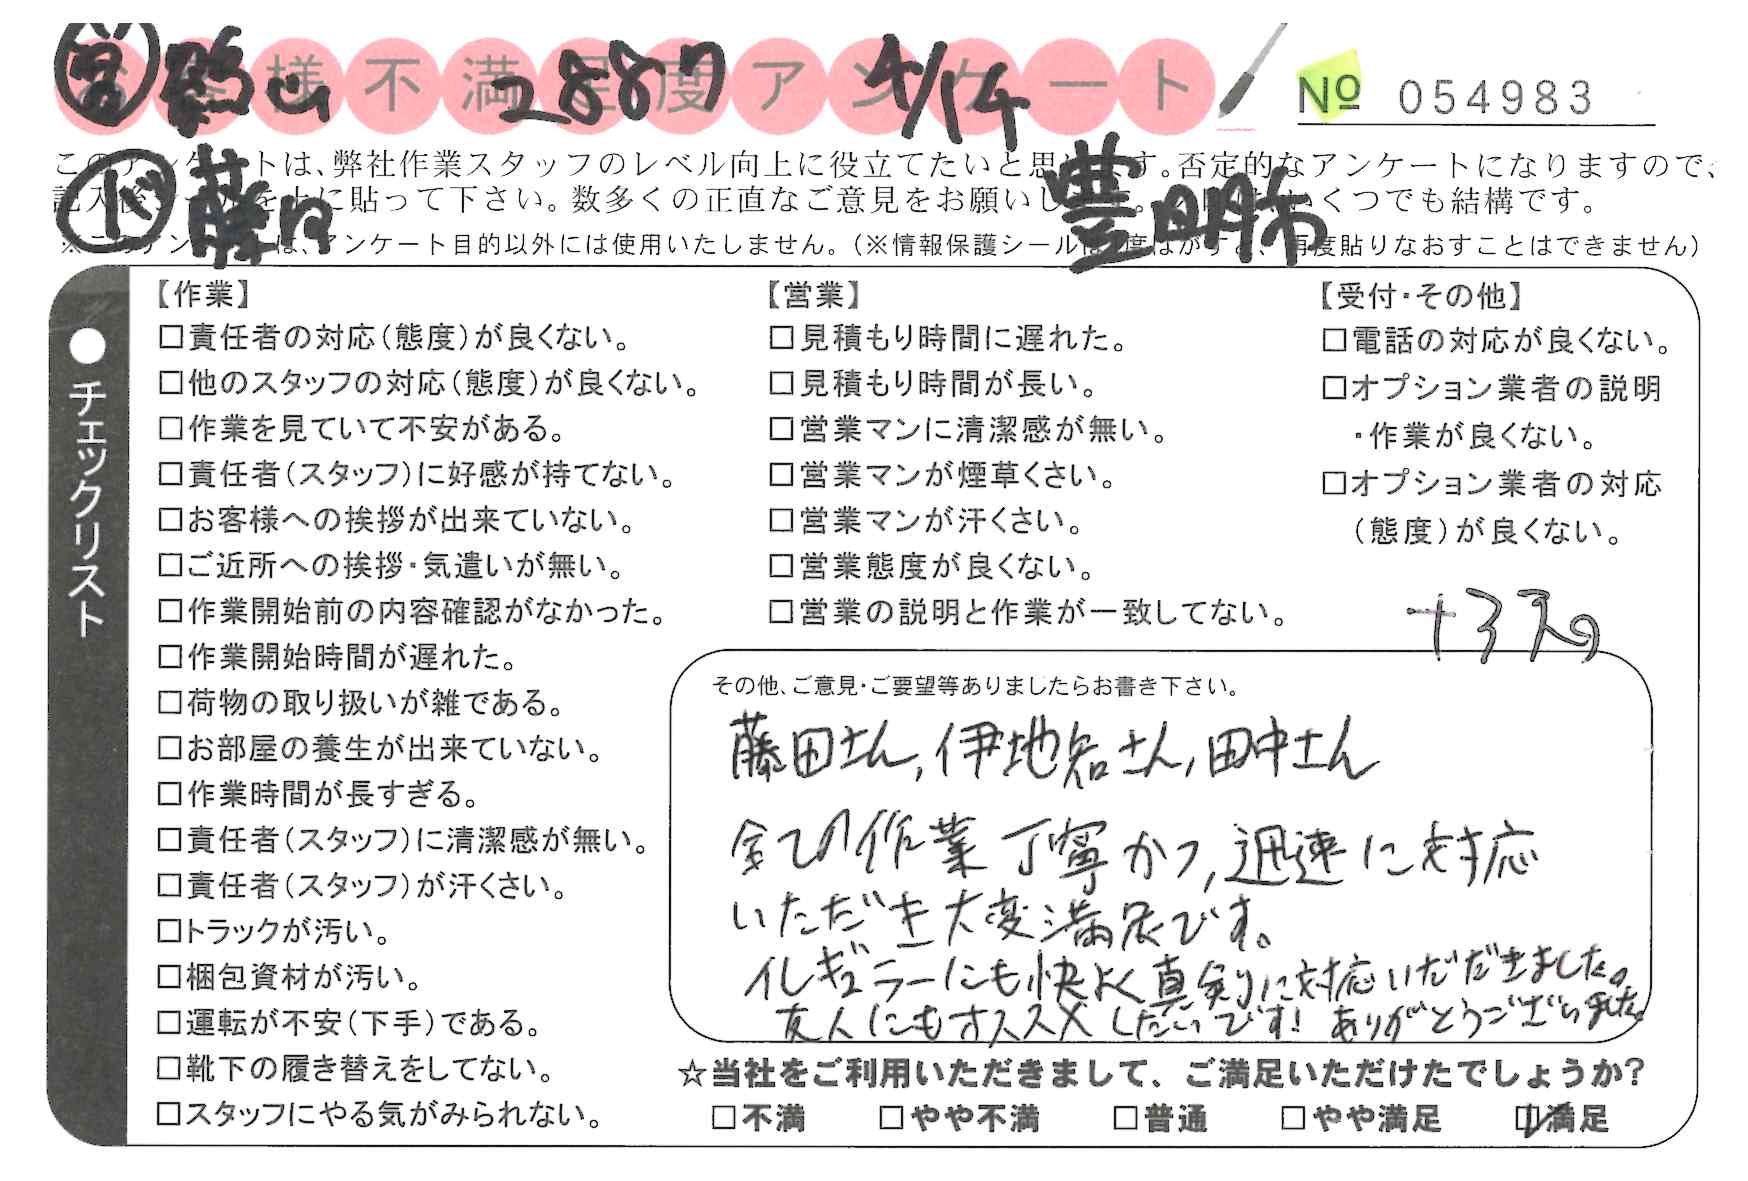 お客様不満足度アンケート
営 影山 2887 4/14
№ 054983
このアンケートは、弊社作業スタッフのレベル向上に役立てたいと思います。否定的なアンケートになりますので、
記入後シールを上に貼って下さい。数多くの正直なご意見をお願いします。
いくつでも結構です。
ド 藤田
豊明市
※このアンケートは、アンケート目的以外には使用いたしません。(※情報保護シールは1度はがすと、再度貼りなおすことはできません)
●チェックリスト
【作業】
□責任者の対応(態度)が良くない。
□他のスタッフの対応(態度)が良くない。
□作業を見ていて不安がある。
□責任者(スタッフ)に好感が持てない。
□お客様への挨拶が出来ていない。
□ご近所への挨拶・気遣いが無い。
□作業開始前の内容確認がなかった。
□作業開始時間が遅れた。
□荷物の取り扱いが雑である。
□お部屋の養生が出来ていない。
□作業時間が長すぎる。
□責任者(スタッフ)に清潔感が無い。
□責任者(スタッフ)が汗くさい。
□トラックが汚い。
□梱包資材が汚い。
□運転が不安(下手)である。
□靴下の履き替えをしてない。
□スタッフにやる気がみられない。
【営業】
□見積もり時間に遅れた。
□見積もり時間が長い。
□営業マンに清潔感が無い。
□営業マンが煙草くさい。
□営業マンが汗くさい。
□営業態度が良くない。
□営業の説明と作業が一致してない。
【受付・その他】
□電話の対応が良くない。
□オプション業者の説明
・作業が良くない。
□オプション業者の対応
(態度)が良くない。
その他、ご意見・ご要望等ありましたらお書き下さい。
藤田さん,伊地知さん,田中さん
全ての作業丁寧かつ,迅速に対応
いただき大変満足です。
イレギュラーにも快よく真剣に対応いただきました。
友人にもオススメしたいです! ありがとうございました。
☆当社をご利用いただきまして、ご満足いただけたでしょうか?
□不満 □やや不満 □普通 □やや満足 ☑満足